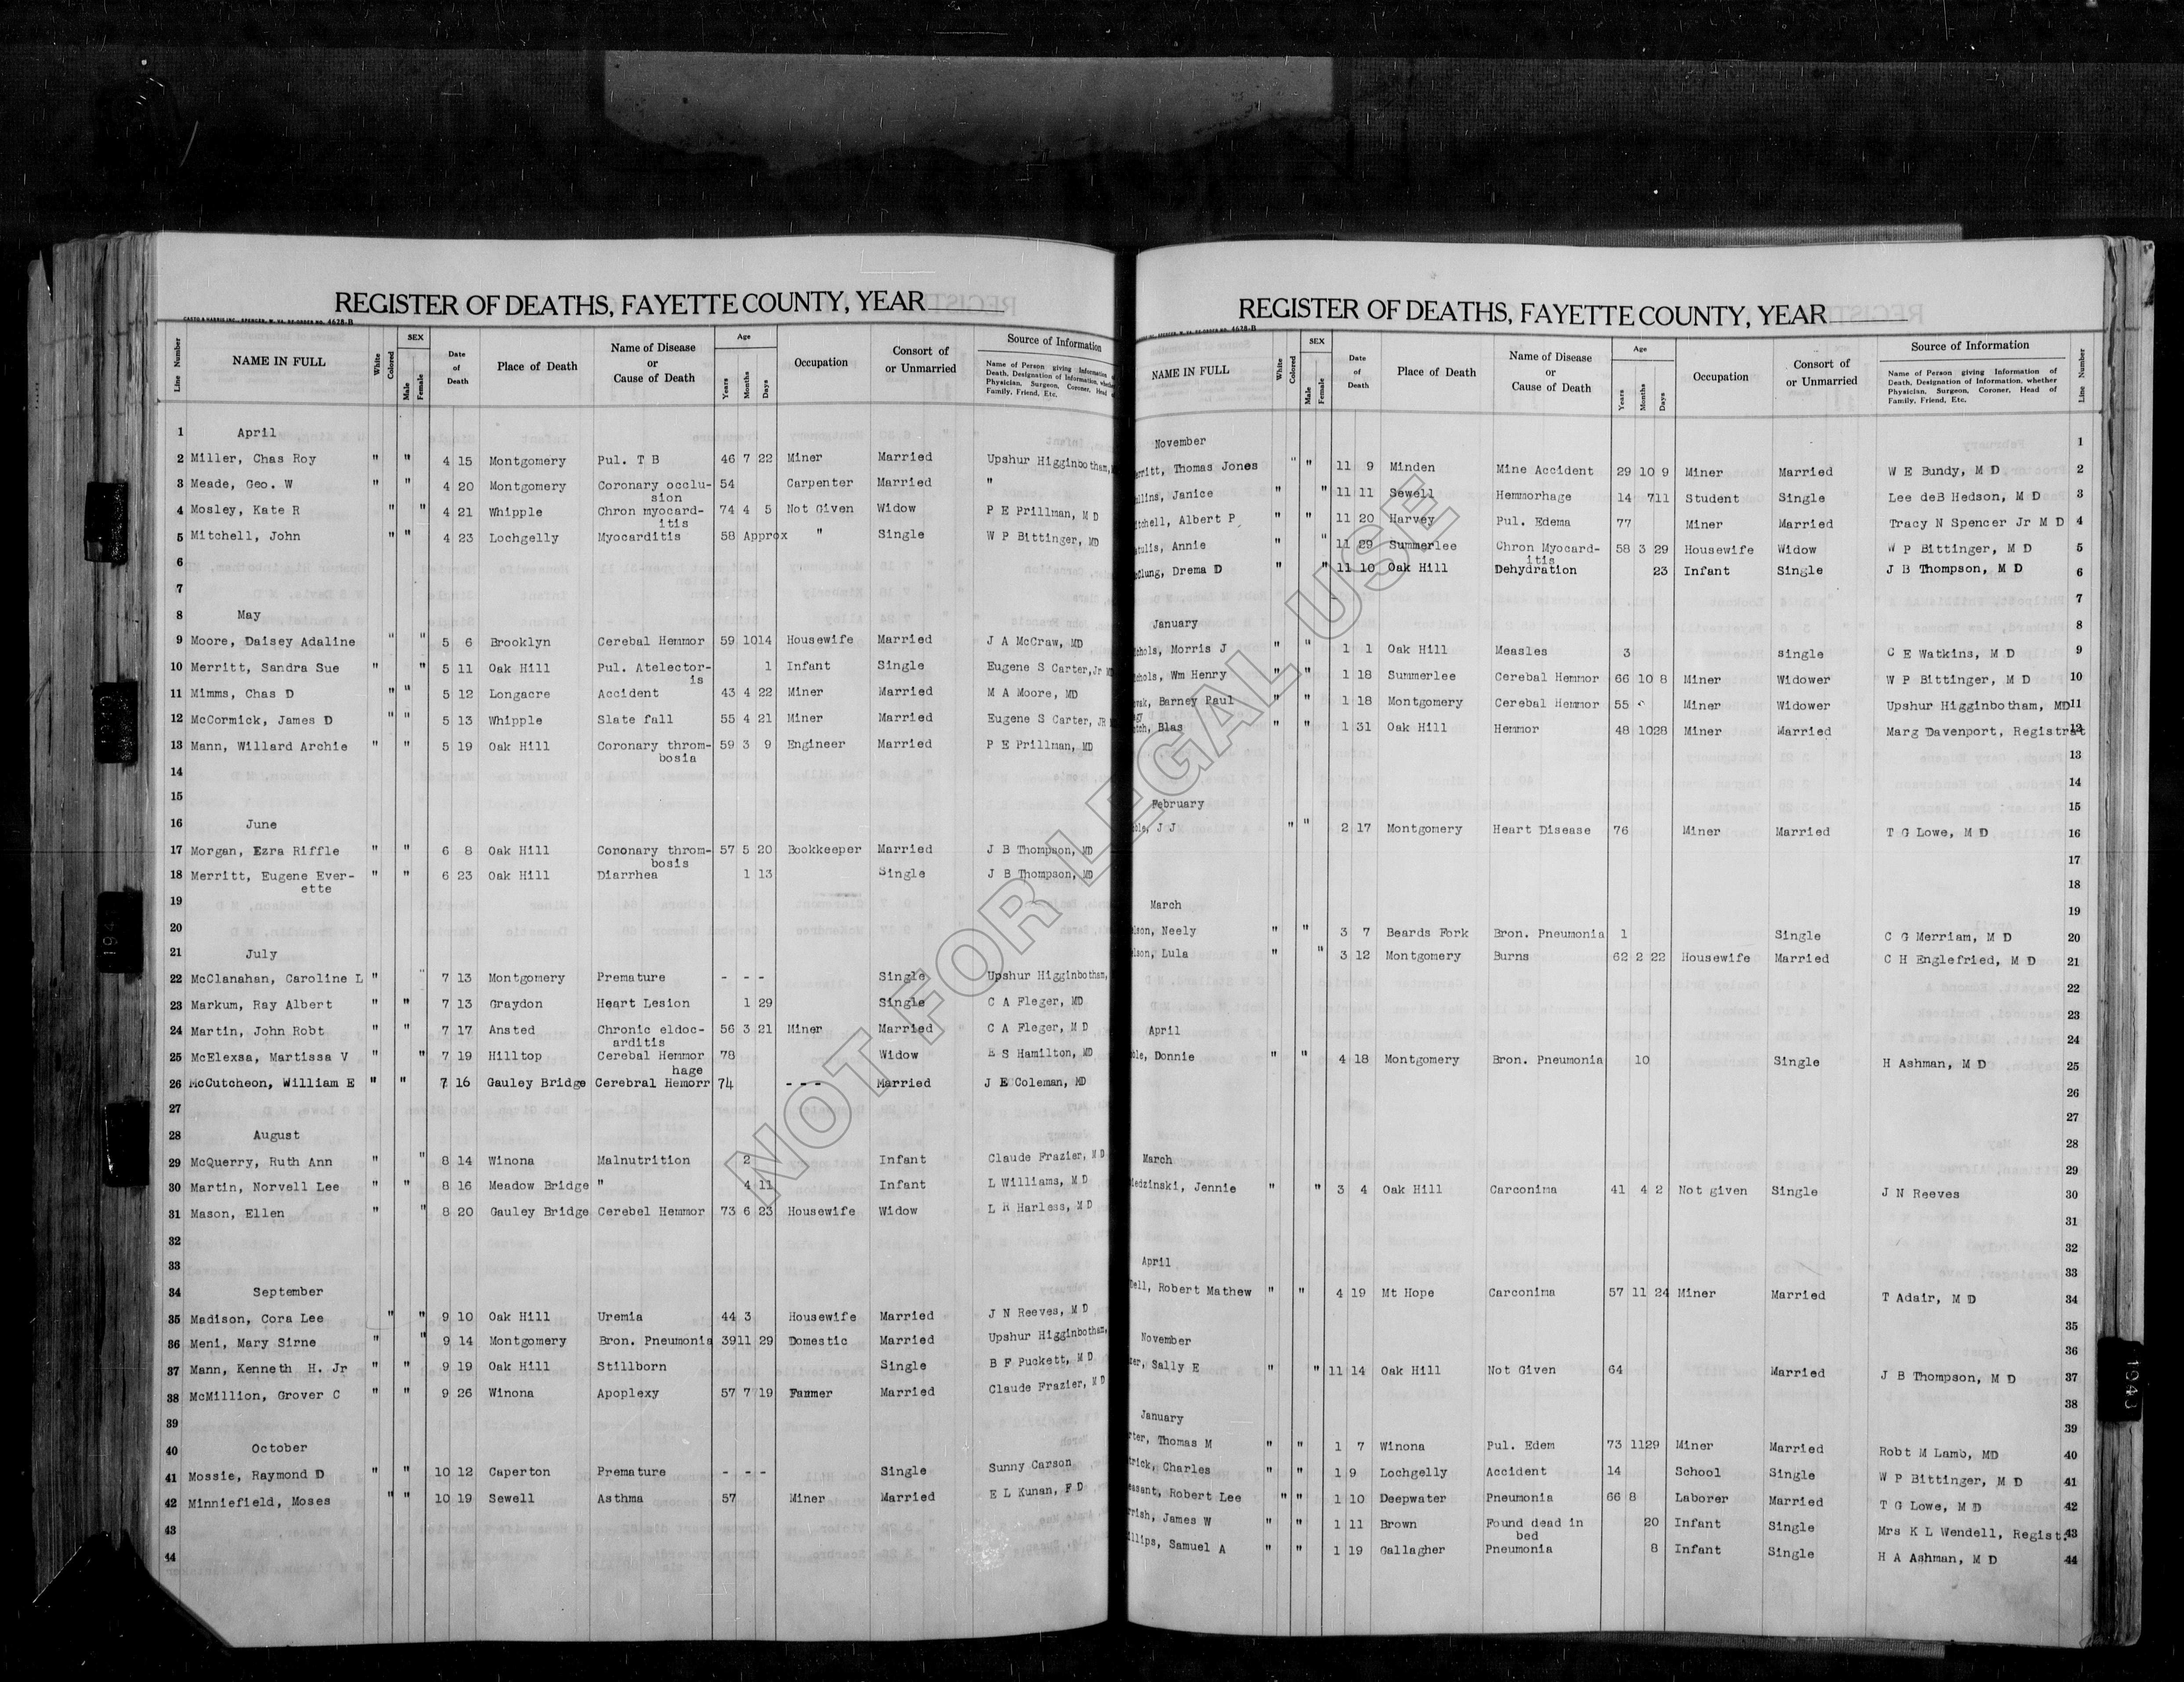 REGISTER OF DEATHS, FAYETTE COUNTY, YEAR
CASTO & HARRIS INC., SPENCER, W. VA. RE-ORDER NO. 4628-B
Line Number NAME IN FULL White Colored SEX Male Female Date of Death Place of Death Name of Disease or Cause of Death Age Years Months Days Occupation Consort of or Unmarried Source of Information
Name of Person giving Information of
Death, Designation of Information, whether
Physician, Surgeon, Coroner, Head of
Family, Friend, Etc.
1 April
2 Miller, Chas Roy " " 4 15 Montgomery Pul. T B 46 7 22 Miner Married Upshur Higginbotham,
3 Meade, Geo. W " " 4 20 Montgomery Coronary occlu-
sion 54 Carpenter Married "
4 Mosley, Kate R " " 4 21 Whipple Chron myocard-
itis 74 4 5 Not Given Widow P E Prillman, M D
5 Mitchell, John " " 4 23 Lochgelly Myocarditis 58 Approx " Single W P Bittinger, MD
6
7
8 May
9 Moore, Daisey Adaline " " 5 6 Brooklyn Cerebal Hemmor 59 10 14 Housewife Married J A McCraw, MD
10 Merritt, Sandra Sue " " 5 11 Oak Hill Pul. Atelector-
is 1 Infant Single Eugene S Carter, Jr MD
11 Mimms, Chas D " " 5 12 Longacre Accident 43 4 22 Miner Married M A Moore, MD
12 McCormick, James D " " 5 13 Whipple Slate fall 55 4 21 Miner Married Eugene S Carter, JR
13 Mann, Willard Archie " " 5 19 Oak Hill Coronary throm-
bosia 59 3 9 Engineer Married P E Prillman, MD
14
15
16 June
17 Morgan, Ezra Riffle " " 6 8 Oak Hill Coronary throm-
bosis 57 5 20 Bookkeeper Married J B Thompson, MD
18 Merritt, Eugene Ever-
ette " " 6 23 Oak Hill Diarrhea 1 13 Single J B Thompson, MD
19
20
21 July
22 McClanahan, Caroline L " " 7 13 Montgomery Premature - - - Single Upshur Higginbotham,
23 Markum, Ray Albert " " 7 13 Graydon Heart Lesion 1 29 Single C A Fleger, MD
24 Martin, John Robt " " 7 17 Ansted Chronic eldoc-
arditis 56 3 21 Miner Married C A Fleger, M D
25 McElexsa, Martissa V " " 7 19 Hilltop Cerebal Hemmor
hage 78 Widow E S Hamilton, MD
26 McCutcheon, William E " " 7 16 Gauley Bridge Cerebral Hemorr 74 - - - Married J E Coleman, MD
27
28 August
29 McQuerry, Ruth Ann " " 8 14 Winona Malnutrition 2 Infant Claude Frazier, M D
30 Martin, Norvell Lee " " 8 16 Meadow Bridge " 4 11 Infant L Williams, M D
31 Mason, Ellen " " 8 20 Gauley Bridge Cerebel Hemmor 73 6 23 Housewife Widow L R Harless, M D
32
33
34 September
35 Madison, Cora Lee " " 9 10 Oak Hill Uremia 44 3 Housewife Married J N Reeves, M D
36 Meni, Mary Sirne " " 9 14 Montgomery Bron. Pneumonia 39 11 29 Domestic Married Upshur Higginbotham,
37 Mann, Kenneth H. Jr " " 9 19 Oak Hill Stillborn Single B F Puckett, M D
38 McMillion, Grover C " " 9 26 Winona Apoplexy 57 7 19 Farmer Married Claude Frazier, M D
39
40 October
41 Mossie, Raymond D " " 10 12 Caperton Premature - - - Single Sunny Carson
42 Minniefield, Moses " " 10 19 Sewell Asthma 57 Miner Married E L Kunan, F D
43
44
REGISTER OF DEATHS, FAYETTE COUNTY, YEAR
SPENCER, W. VA. RE-ORDER NO. 4628-B
NAME IN FULL White Colored SEX Male Female Date of Death Place of Death Name of Disease or Cause of Death Age Years Months Days Occupation Consort of or Unmarried Source of Information Line Number
Name of Person giving Information of
Death, Designation of Information, whether
Physician, Surgeon, Coroner, Head of
Family, Friend, Etc.
November 1
erritt, Thomas Jones " " 11 9 Minden Mine Accident 29 10 9 Miner Married W E Bundy, M D 2
llins, Janice " " 11 11 Sewell Hemmorhage 14 7 11 Student Single Lee deB Hedson, M D 3
itchell, Albert P " " 11 20 Harvey Pul. Edema 77 Miner Married Tracy N Spencer Jr M D 4
tulis, Annie " " 11 29 Summerlee Chron Myocard-
itis 58 3 29 Housewife Widow W P Bittinger, M D 5
Clung, Drema D " " 11 10 Oak Hill Dehydration 23 Infant Single J B Thompson, M D 6
7
January 8
chols, Morris J " " 1 1 Oak Hill Measles 3 single C E Watkins, M D 9
chols, Wm Henry " " 1 18 Summerlee Cerebal Hemmor 66 10 8 Miner Widower W P Bittinger, M D 10
vak, Barney Paul " " 1 18 Montgomery Cerebal Hemmor 55 Miner Widower Upshur Higginbotham, MD 11
tch, Blas " " 1 31 Oak Hill Hemmor 48 10 28 Miner Married Marg Davenport, Registrat 12
13
14
February 15
ble, J J " " 2 17 Montgomery Heart Disease 76 Miner Married T G Lowe, M D 16
17
18
March 19
lson, Neely " " 3 7 Beards Fork Bron. Pneumonia 1 Single C G Merriam, M D 20
lson, Lula " " 3 12 Montgomery Burns 62 2 22 Housewife Married C H Englefried, M D 21
22
23
April 24
ble, Donnie " " 4 18 Montgomery Bron. Pneumonia 10 Single H Ashman, M D 25
26
27
28
March 29
iedzinski, Jennie " " 3 4 Oak Hill Carconima 41 4 2 Not given Single J N Reeves 30
31
32
April 33
ell, Robert Mathew " " 4 19 Mt Hope Carconima 57 11 24 Miner Married T Adair, M D 34
35
November 36
er, Sally E " " 11 14 Oak Hill Not Given 64 Married J B Thompson, M D 37
38
January 39
rter, Thomas M " " 1 7 Winona Pul. Edem 73 11 29 Miner Married Robt M Lamb, MD 40
trick, Charles " " 1 9 Lochgelly Accident 14 School Single W P Bittinger, M D 41
easant, Robert Lee " " 1 10 Deepwater Pneumonia 66 8 Laborer Married T G Lowe, M D 42
rrish, James W " " 1 11 Brown Found dead in
bed 20 Infant Single Mrs K L Wendell, Regist. 43
illips, Samuel A " " 1 19 Gallagher Pneumonia 8 Infant Single H A Ashman, M D 44
NOT FOR LEGAL USE
1943